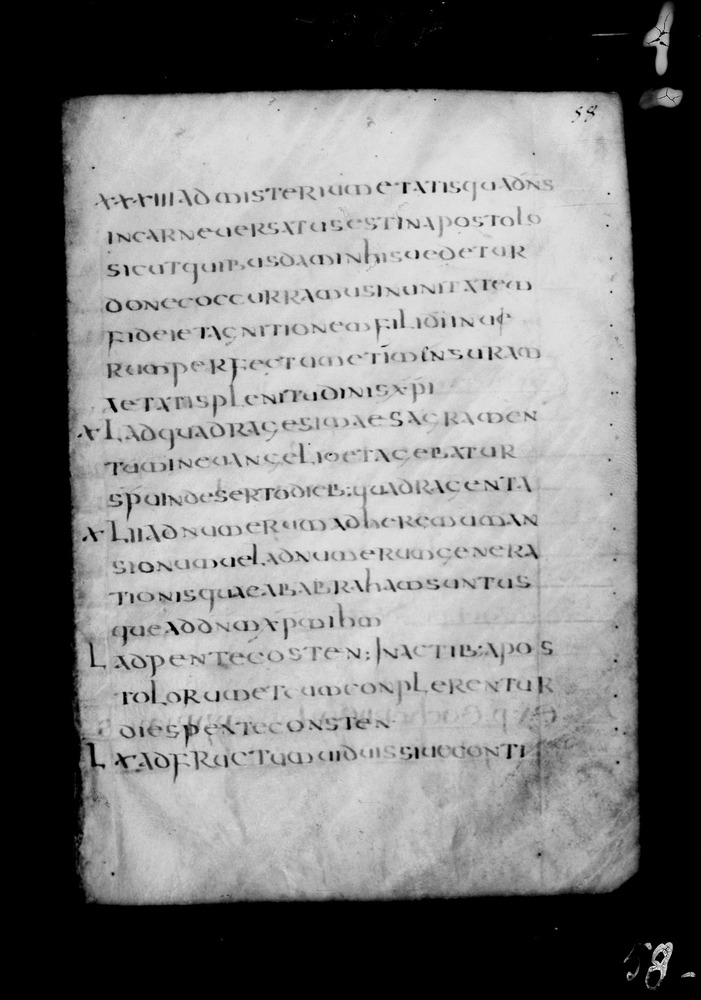 58
XXXIII AD MISTERIUM ETATIS QUA DNS
IN CARNE UERSATUS EST IN APOSTOLO
SICUT QUIBUSDAM IN HIS UEDETUR
DONEC OCCURRAMUS IN UNITATEM
FIDEI ET AGNITIONEM FILII DI IN UI
RUM PERFECTUM ET IM INSURAM
AETATIS PLENITUDINIS XPI
XL AD QUADRAGESIMAE SACRAMEN
TUM IN EUANGELIO ET AGEBATUR
SPU IN DESERTO DIEB: QUADRAGENTA
XLII AD NUMERUM AD HEREMUM MAN
SIONUM UEL AD NUMERUM GENERA
TIONIS QUAE AB ABRAHAM SUNT US
QUE AD DNM XPM IHM
L AD PENTECOSTEN: IN ACTIB: APOS
TOLORUM ET CUM CONPLERENTUR
DIES PENTECONSTEN
LX AD FRUCTUM UIDUIS SIUE CONTI
58-